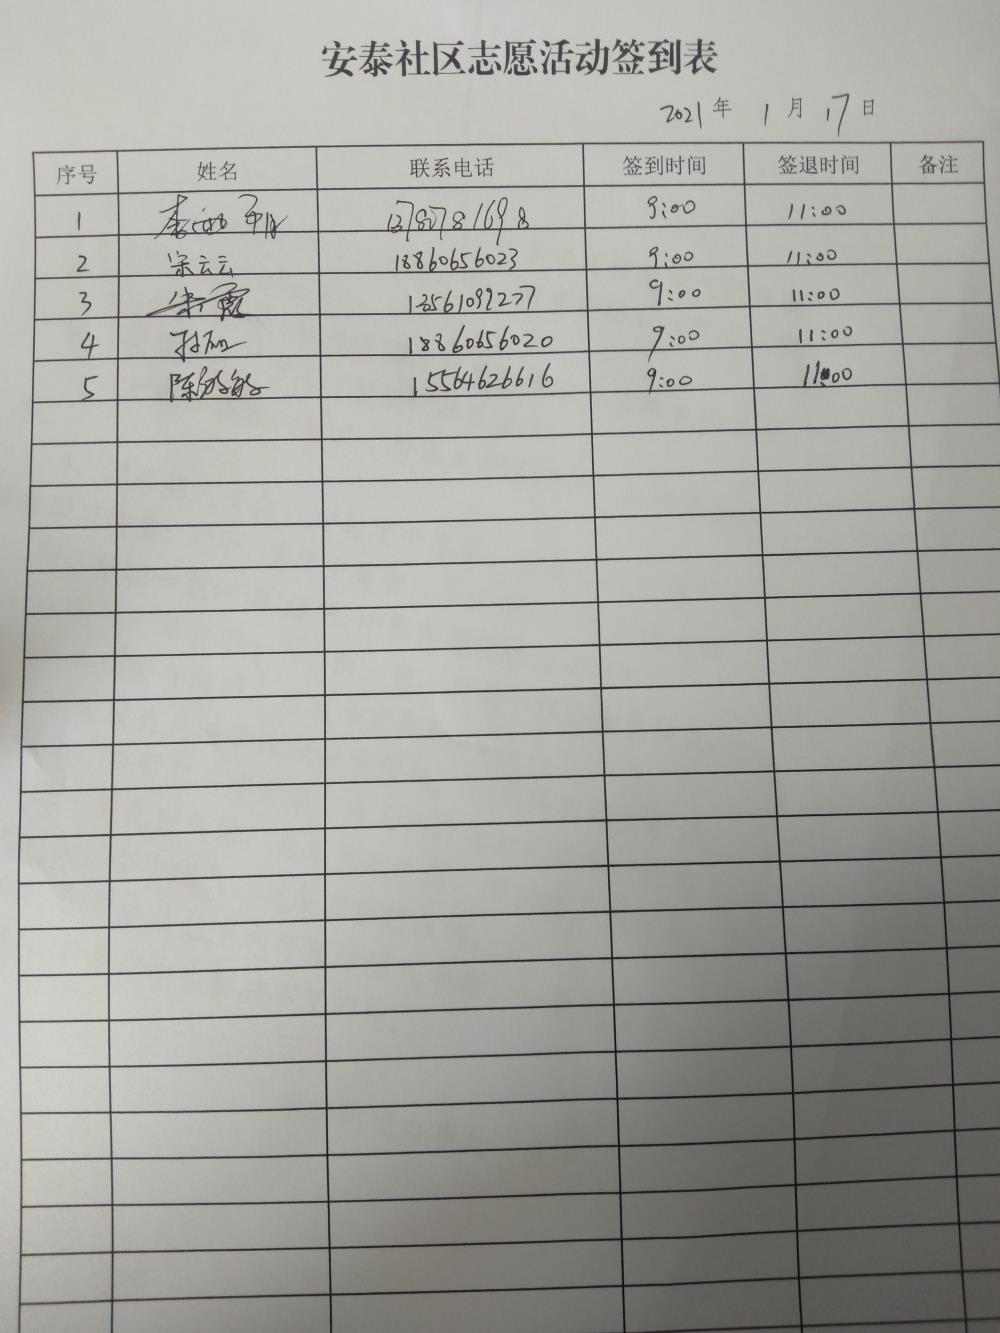 安泰社区志愿活动签到表
2021年 1月 17日
序号 姓名 联系电话 签到时间 签退时间 备注
1 李 朝 13780781698 9:00 11:00
2 宋云云 18860656023 9:00 11:00
3 霞 13561092277 9:00 11:00
4 18860656020 9:00 11:00
5 陈 15564626616 9:00 11:00